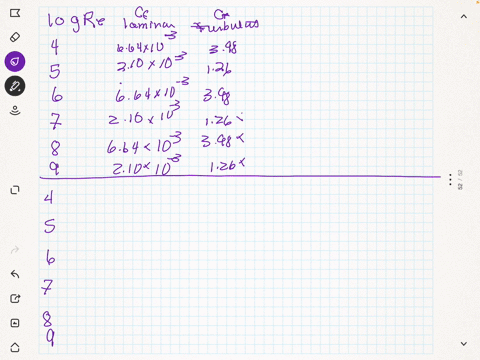 log Re Cf laminar Cf turbulas
4 6.64×10⁻³ 3.98
5 2.10×10⁻³ 1.26
6 6.64×10⁻³ 3.98
7 2.10×10⁻³ 1.26
8 6.64×10⁻³ 3.98×
9 2.10×10⁻³ 1.26×
4
5
6
7
8
9
52 / 52